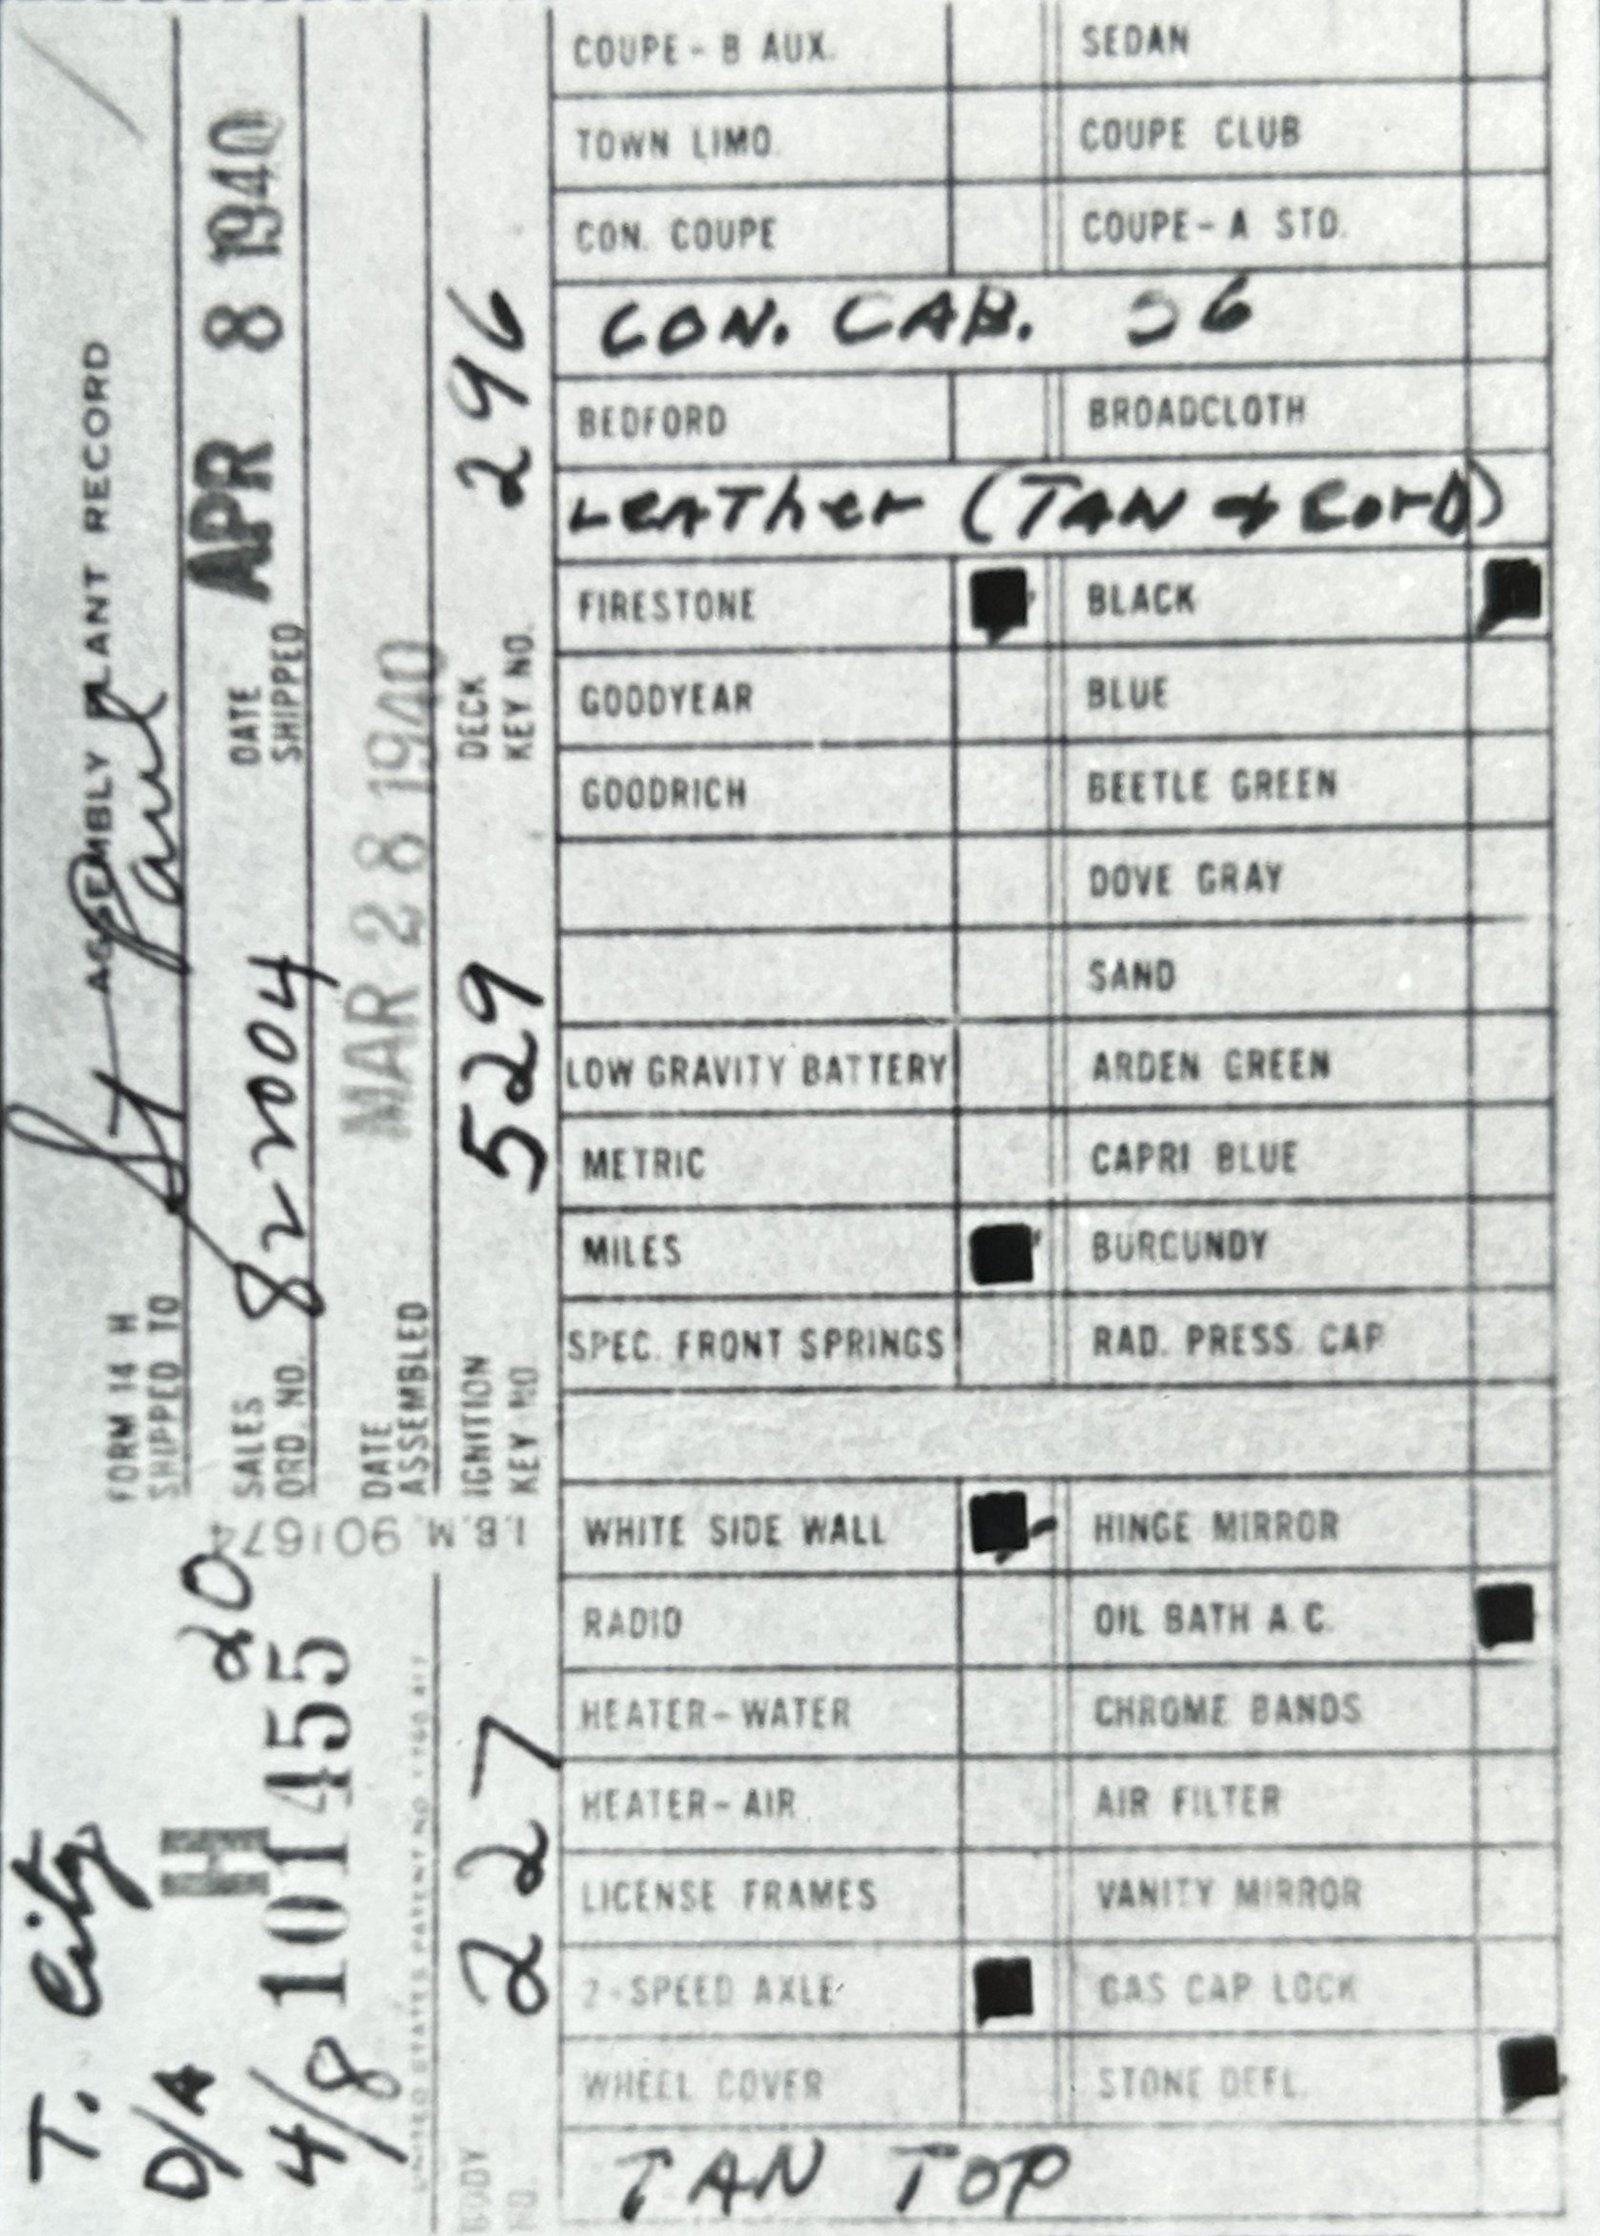 ASSEMBLY PLANT RECORD
FORM 14 H
SHIPPED TO St Paul
SALES ORD. NO. 822004
DATE SHIPPED APR 8 1940
DATE ASSEMBLED MAR 28 1940
IGNITION KEY NO. 529
DECK KEY NO. 296
I.B.M. 901674
T. City
D/A
4/8
H
20
101455
UNITED STATES PATENT NO
BODY NO. 227
COUPE - B AUX. SEDAN
TOWN LIMO. COUPE CLUB
CON. COUPE COUPE - A STD.
CON. CAB. 56
BEDFORD BROADCLOTH
LEATher (TAN & CorD)
FIRESTONE BLACK
GOODYEAR BLUE
GOODRICH BEETLE GREEN
DOVE GRAY
SAND
LOW GRAVITY BATTERY ARDEN GREEN
METRIC CAPRI BLUE
MILES BURGUNDY
SPEC. FRONT SPRINGS RAD. PRESS. CAP
WHITE SIDE WALL HINGE MIRROR
RADIO OIL BATH A.C.
HEATER - WATER CHROME BANDS
HEATER - AIR AIR FILTER
LICENSE FRAMES VANITY MIRROR
2 - SPEED AXLE GAS CAP LOCK
WHEEL COVER STONE DEFL.
TAN TOP